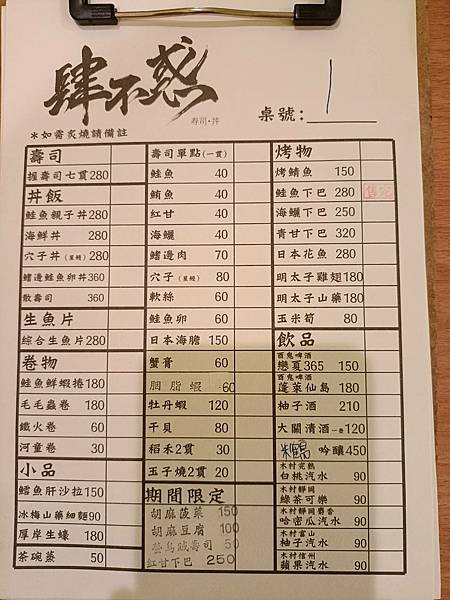 肆不惑
寿司・丼
桌號: 1
*如需炙燒請備註
壽司
握壽司七貫280
丼飯
鮭魚親子丼280
海鮮丼 280
穴子丼(星鰻) 280
鰭邊鮭魚卵丼360
散壽司 360
生魚片
綜合生魚片280
卷物
鮭魚鮮蝦捲180
毛毛蟲卷 180
鐵火卷 60
河童卷 30
小品
鱈魚肝沙拉150
冰梅山藥細麵90
厚岸生蠔 180
茶碗蒸 50
壽司單點(一貫)
鮭魚 40
鮪魚 40
紅甘 40
海鱺 40
鰭邊肉 70
穴子(星鰻) 80
軟絲 60
鮭魚卵 60
日本海膽 150
蟹膏 60
胭脂蝦 60
牡丹蝦 120
干貝 80
稻禾2貫 30
玉子燒2貫 20
期間限定
胡麻菠菜 150
胡麻豆腐 100
螢烏賊壽司 50
紅甘下巴 250
烤物
烤鯖魚 150
鮭魚下巴 280 售完
海鱺下巴 250
青甘下巴 320
日本花魚 280
明太子雞翅180
明太子山藥180
玉米筍 80
飲品
百鬼啤酒
戀夏365 150
百鬼啤酒
蓬萊仙島 180
柚子酒 210
大關清酒一壺120
吟釀450
木村完熟
白桃汽水 90
木村靜岡
綠茶可樂 90
木村靜岡麝香
哈密瓜汽水 90
木村富山
柚子汽水 90
木村信州
蘋果汽水 90